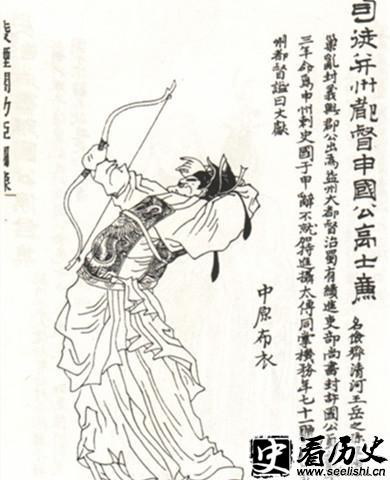 司徒并州都督申國公高士廉
名儉齊清河王岳之孫
巢亂封義興郡公出為益州大都督治蜀有績進吏部尚書封許國公
三年命為申州刺史國于申辭不就加特進攝太傅同掌機務年七十一贈
州都督諡曰文獻
中原布衣
凌煙閣功臣圖像
史 看历史
www.seelishi.com